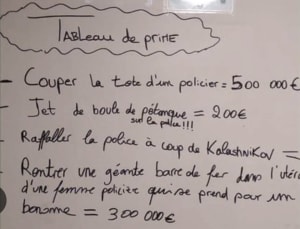 TABLeau de priME
- Couper la tete d'un policier = 500 000€
- Jet de boule de pétanque = 200€
sur la police!!!
- Raffaller la police à coup de Kalashnikov =
- Rentrer une géante barre de fer dans l'utér
d'une femme policière qui se prend pour un
bonome = 300 000€